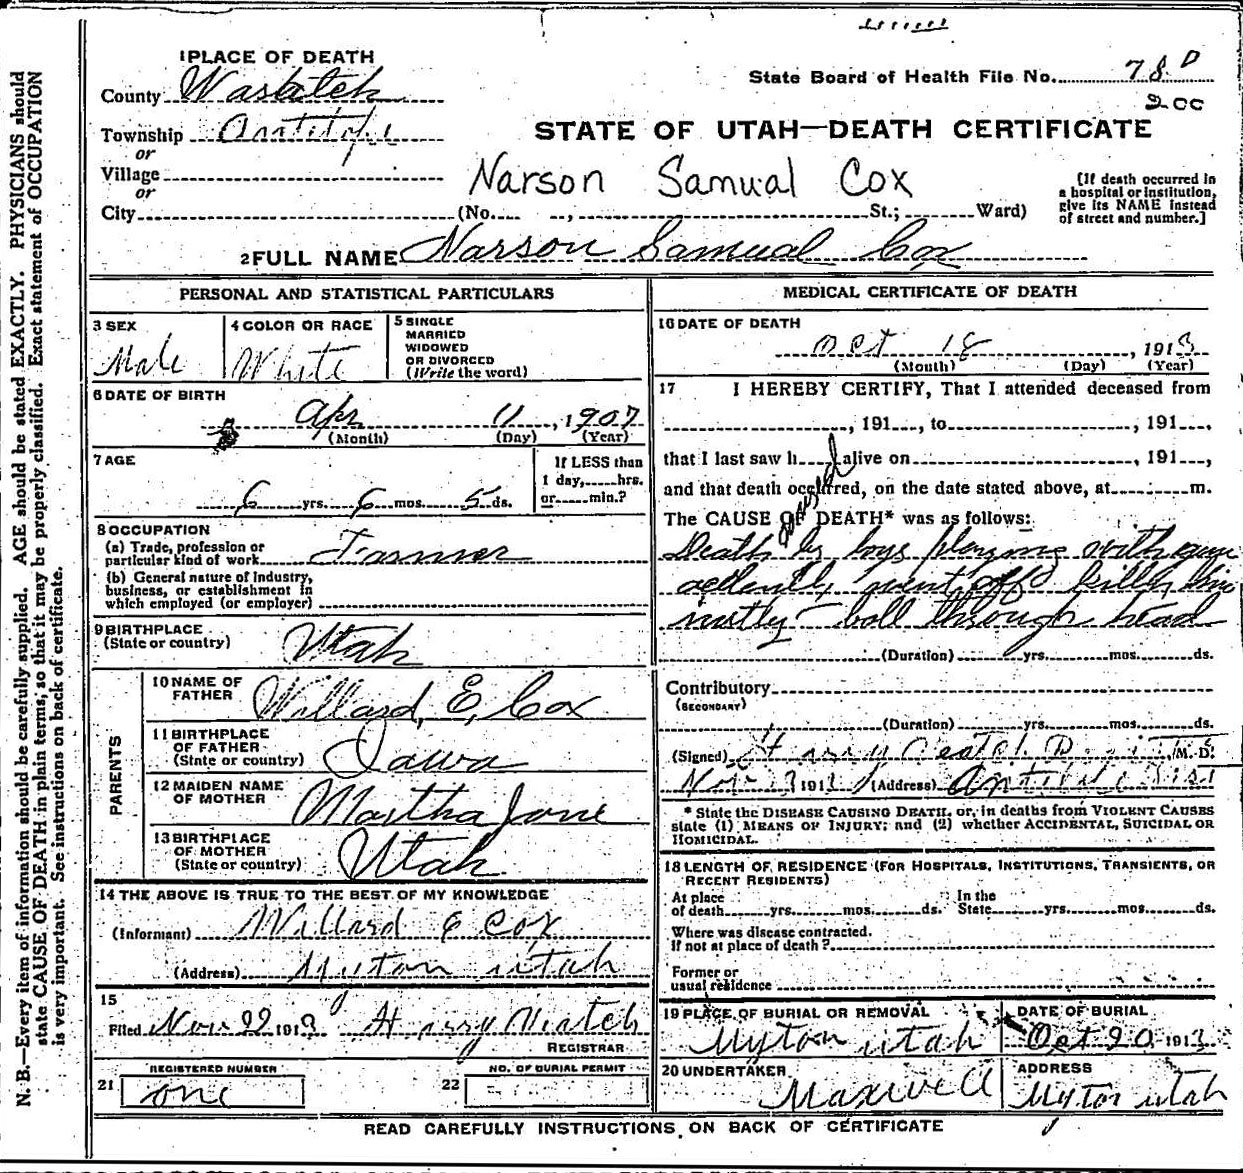 1 PLACE OF DEATH
County Wasatch
State Board of Health File No. 78 D
200
Township Antelope
or
Village
or
City (No. , St.; Ward)
STATE OF UTAH—DEATH CERTIFICATE
Narson Samual Cox
[If death occurred in
a hospital or institution,
give its NAME instead
of street and number.]
2 FULL NAME Narson Samual Cox
PERSONAL AND STATISTICAL PARTICULARS
3 SEX
Male
4 COLOR OR RACE
White
5 SINGLE
MARRIED
WIDOWED
OR DIVORCED
(Write the word)
6 DATE OF BIRTH
Apr 11, 1907
(Month) (Day) (Year)
7 AGE
6 yrs. 6 mos. 5 ds.
If LESS than
1 day, hrs.
or min.?
8 OCCUPATION
(a) Trade, profession or
particular kind of work Farmer
(b) General nature of Industry,
business, or establishment in
which employed (or employer)
9 BIRTHPLACE
(State or country) Utah
PARENTS
10 NAME OF
FATHER Willard, E, Cox
11 BIRTHPLACE
OF FATHER
(State or country) Iawa
12 MAIDEN NAME
OF MOTHER Martha Jane
13 BIRTHPLACE
OF MOTHER
(State or country) Utah
14 THE ABOVE IS TRUE TO THE BEST OF MY KNOWLEDGE
(Informant) Willard E Cox
(Address) Myton utah
15
Filed Nov 22 1913 Harry Veatch
REGISTRAR
21 REGISTERED NUMBER
one
22 NO. OF BURIAL PERMIT
MEDICAL CERTIFICATE OF DEATH
16 DATE OF DEATH
Oct 18, 1913
(Month) (Day) (Year)
17 I HEREBY CERTIFY, That I attended deceased from
, 191 , to , 191 ,
that I last saw h alive on , 191 ,
and that death occurred, on the date stated above, at m.
The CAUSE OF DEATH* was as follows:
caused
Death by boys playing with gun
went off killing him
ball through head
(Duration) yrs. mos. ds.
Contributory
(SECONDARY)
(Duration) yrs. mos. ds.
(Signed) Harry Veatch M. D.
Nov 1913 (Address) Antelope
* State the DISEASE CAUSING DEATH, or, in deaths from VIOLENT CAUSES
state (1) MEANS OF INJURY; and (2) whether ACCIDENTAL, SUICIDAL OR
HOMICIDAL.
18 LENGTH OF RESIDENCE (FOR HOSPITALS, INSTITUTIONS, TRANSIENTS, OR
RECENT RESIDENTS)
At place
of death yrs. mos. ds.
In the
State yrs. mos. ds.
Where was disease contracted,
If not at place of death?
Former or
usual residence
19 PLACE OF BURIAL OR REMOVAL
Myton utah
DATE OF BURIAL
Oct 20, 1913
20 UNDERTAKER
Maxwell
ADDRESS
Myton utah
READ CAREFULLY INSTRUCTIONS ON BACK OF CERTIFICATE
N. B.—Every item of information should be carefully supplied. AGE should be stated EXACTLY. PHYSICIANS should
state CAUSE OF DEATH in plain terms, so that it may be properly classified. Exact statement of OCCUPATION
is very important. See instructions on back of certificate.